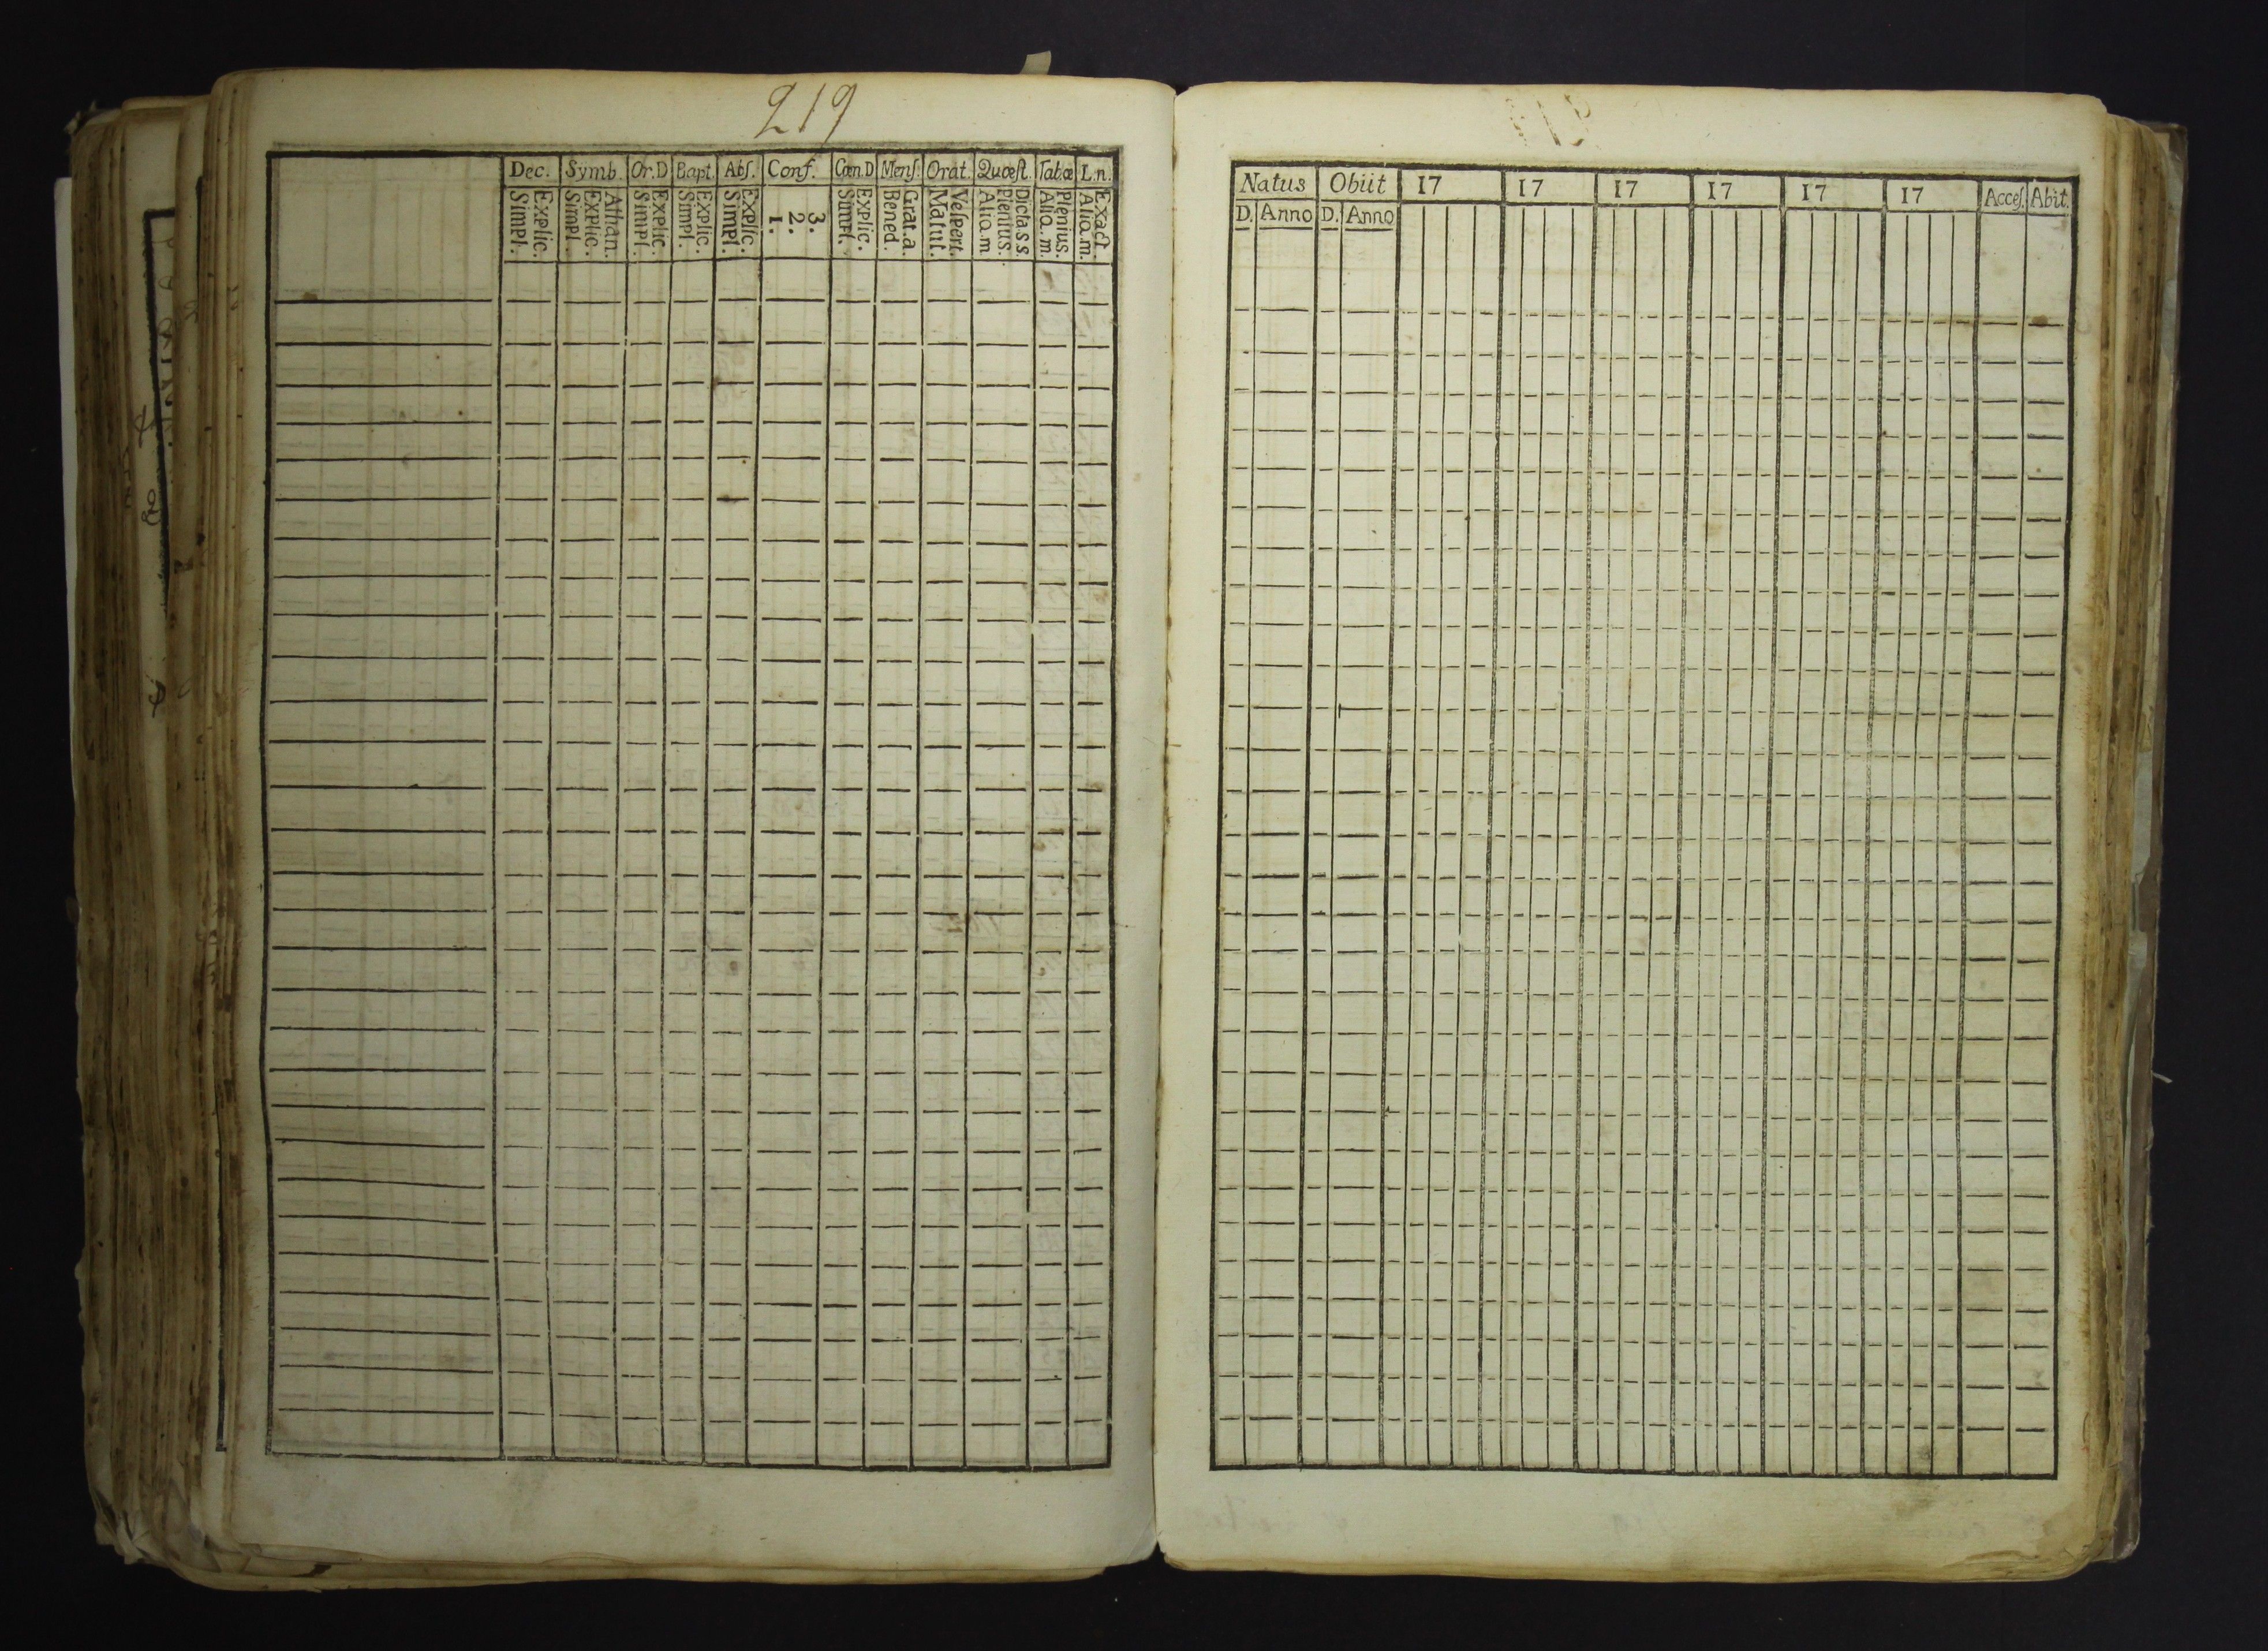 219
Dec. Symb. Or.D Bapt. Abſ. Conf. Cœn.D Menſ. Orat. Quœſt. Tab.œ L.n.
Explic.
Simpl.
Athan.
Explic.
Simpl.
Explic.
Simpl.
Explic.
Simpl.
Explic.
Simpl.
3.
2.
1.
Explic.
Simpl.
Grat.a.
Bened.
Veſpert.
Matut.
Dicta s s.
Plenius.
Aliq.m
Plenius.
Aliq.m.
Exact.
Aliq.m.
Natus Obiit 17 17 17 17 17 17 Acceſ. Abit.
D. Anno D. Anno